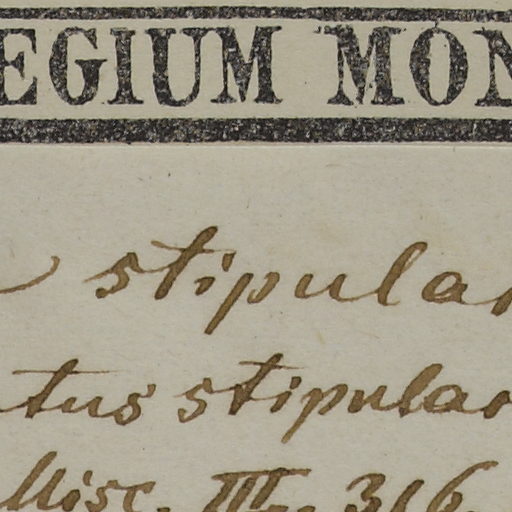 EGIUM MON
stipular
tus stipular
Misc. III. 316.